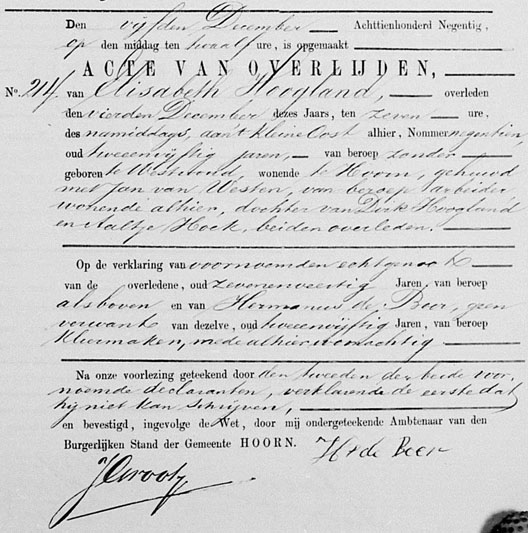 Den vijfden December Achttienhonderd Negentig,
op den middag ten twaalf ure, is opgemaakt
ACTE VAN OVERLIJDEN,
No. 214. van Elisabeth Hoogland, overleden
den vierden December dezes Jaars, ten zeven ure,
des namiddags, aan 't kleine Oost alhier, Nommer negentien,
oud tweeenvijftig jaren, van beroep zonder
geboren te Westwoud, wonende te Hoorn, gehuwd
met Jan van Westen, van beroep arbeider
wonende alhier, dochter van Dirk Hoogland
en Aaltje Hoek, beiden overleden.
Op de verklaring van voornoemden echtgenoot
van de overledene, oud zevenenveertig Jaren, van beroep
als boven en van Hermanus de Beer, geen
verwant van dezelve, oud tweeenvijftig Jaren, van beroep
kleermaker, mede alhier woonachtig
Na onze voorlezing geteekend door den tweeden der beide voor-
noemde declaranten, verklarende de eerste dat
hij niet kan schrijven,
en bevestigd, ingevolge de Wet, door mij ondergeteekende Ambtenaar van den
Burgerlijken Stand der Gemeente HOORN.
H de Beer